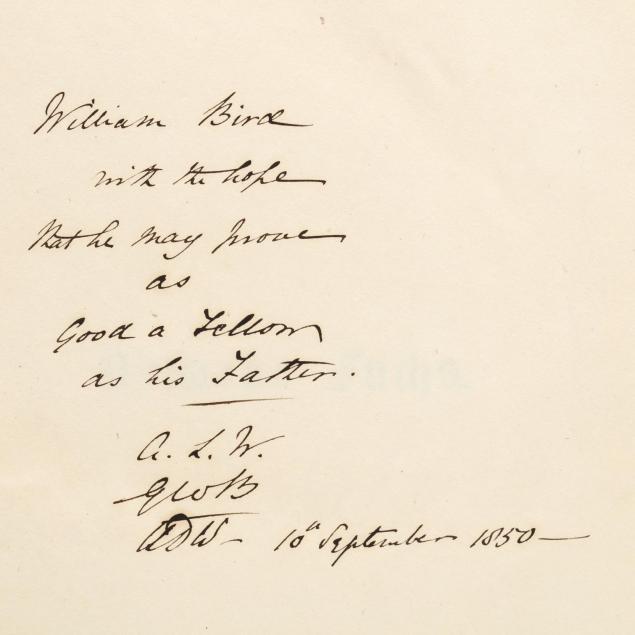 William Bird
with the hope
that he may prove
as
Good a Fellow
as his Father.
A. L. W.
GWB
ADW- 10th September 1850-